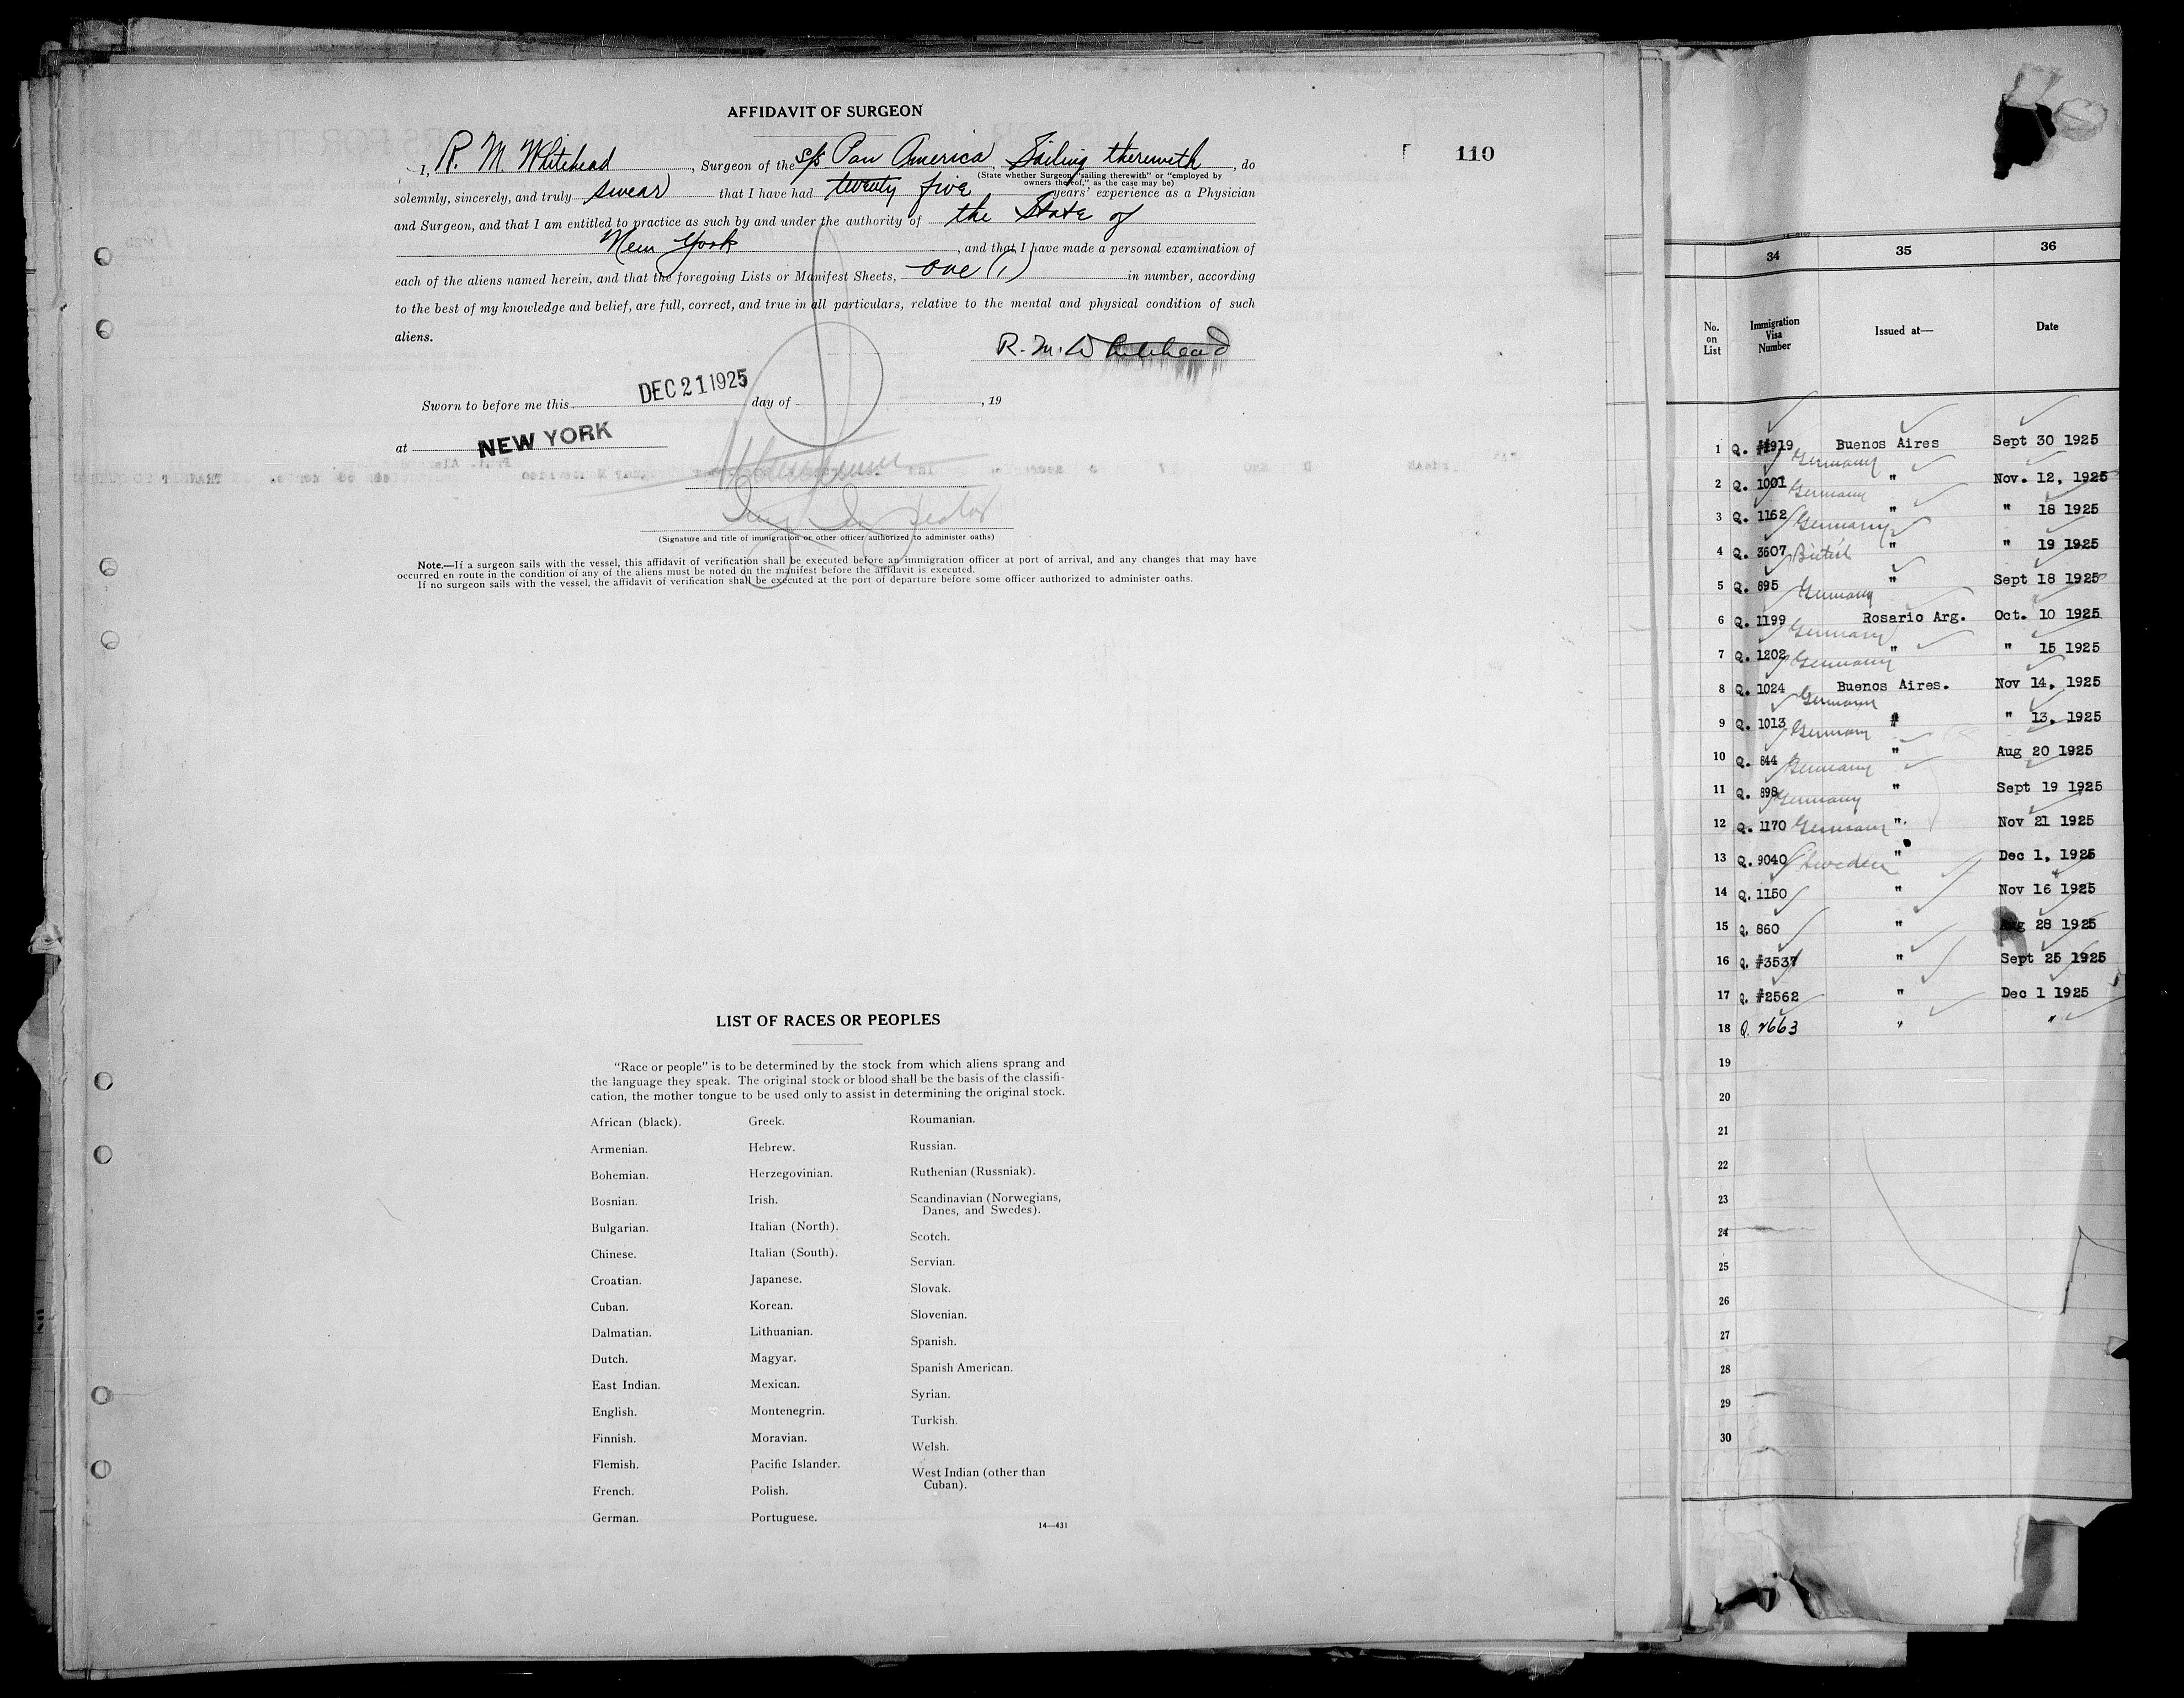 AFFIDAVIT OF SURGEON
110
I, R. M. Whitehead, Surgeon of the S/S Pan America, Sailing therewith, do
(State whether Surgeon "sailing therewith" or "employed by
owners thereof," as the case may be)
solemnly, sincerely, and truly swear that I have had twenty five years' experience as a Physician
and Surgeon, and that I am entitled to practice as such by and under the authority of the State of
New York, and that I have made a personal examination of
each of the aliens named herein, and that the foregoing Lists or Manifest Sheets, one (1) in number, according
to the best of my knowledge and belief, are full, correct, and true in all particulars, relative to the mental and physical condition of such
aliens.
R. M. Whitehead
Sworn to before me this DEC 21 1925 day of , 19
at NEW YORK
(Signature and title of immigration or other officer authorized to administer oaths)
Note.—If a surgeon sails with the vessel, this affidavit of verification shall be executed before an immigration officer at port of arrival, and any changes that may have
occurred en route in the condition of any of the aliens must be noted on the manifest before the affidavit is executed.
If no surgeon sails with the vessel, the affidavit of verification shall be executed at the port of departure before some officer authorized to administer oaths.
LIST OF RACES OR PEOPLES
"Race or people" is to be determined by the stock from which aliens sprang and
the language they speak. The original stock or blood shall be the basis of the classifi-
cation, the mother tongue to be used only to assist in determining the original stock.
African (black).
Armenian.
Bohemian.
Bosnian.
Bulgarian.
Chinese.
Croatian.
Cuban.
Dalmatian.
Dutch.
East Indian.
English.
Finnish.
Flemish.
French.
German.
Greek.
Hebrew.
Herzegovinian.
Irish.
Italian (North).
Italian (South).
Japanese.
Korean.
Lithuanian.
Magyar.
Mexican.
Montenegrin.
Moravian.
Pacific Islander.
Polish.
Portuguese.
Roumanian.
Russian.
Ruthenian (Russniak).
Scandinavian (Norwegians,
Danes, and Swedes).
Scotch.
Servian.
Slovak.
Slovenian.
Spanish.
Spanish American.
Syrian.
Turkish.
Welsh.
West Indian (other than
Cuban).
14—431
34 35 36
No.
on
List
Immigration
Visa
Number
Issued at—
Date
1 Q. #919 Germany Buenos Aires Sept 30 1925
2 Q. 1001 Germany " Nov. 12, 1925
3 Q. 1162 Germany " " 18 1925
4 Q. 3607 British " " 19 1925
5 Q. 895 Germany " Sept 18 1925
6 Q. 1199 Germany Rosario Arg. Oct. 10 1925
7 Q. 1202 Germany " " 15 1925
8 Q. 1024 Germany Buenos Aires. Nov 14, 1925
9 Q. 1013 Germany " " 13, 1925
10 Q. 844 Germany " Aug 20 1925
11 Q. 898 Germany " Sept 19 1925
12 Q. 1170 Germany " Nov 21 1925
13 Q. 9040 Sweden " Dec 1, 1925
14 Q. 1150 " Nov 16 1925
15 Q. 860 " Aug 28 1925
16 Q. #3537 " Sept 25 1925
17 Q. #2562 " Dec 1 1925
18 Q. 2663 " "
19
20
21
22
23
24
25
26
27
28
29
30